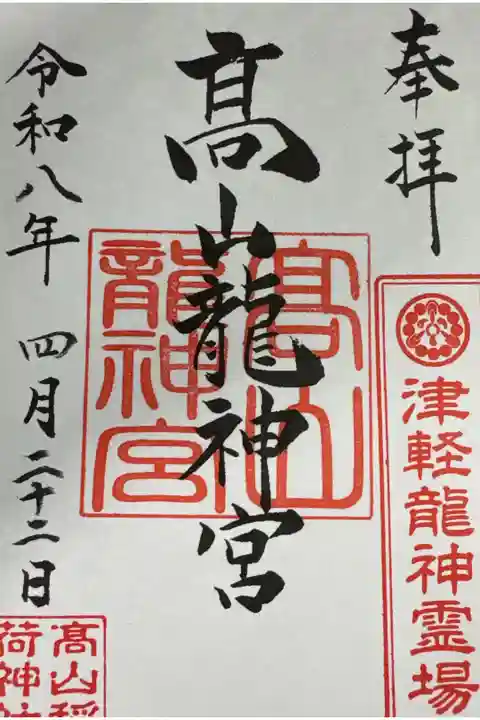 奉拝
津軽龍神霊場
髙山龍神宮
髙山龍神宮
令和八年 四月二十二日
髙山稲荷神社